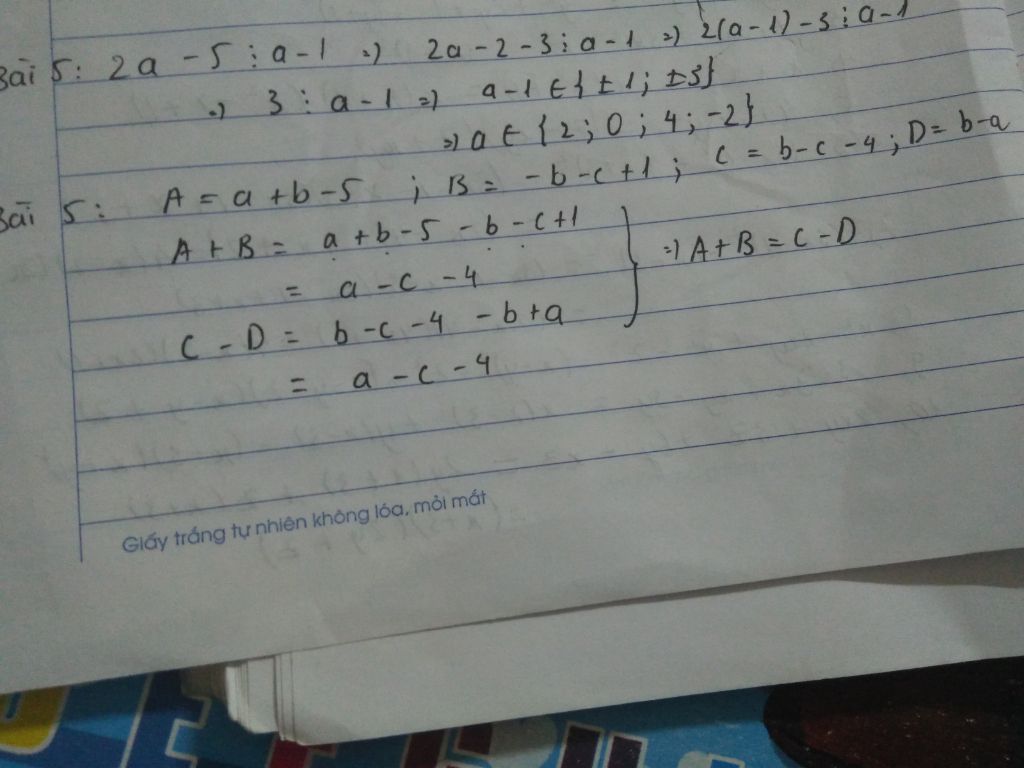 Bài 5: 2a - 5 ⋮ a - 1 => 2a - 2 - 3 ⋮ a - 1 => 2(a - 1) - 3 ⋮ a - 1
=> 3 ⋮ a - 1 => a - 1 ∈ {±1; ±3}
=> a ∈ {2; 0; 4; -2}
Bài 5: A = a + b - 5 ; B = -b - c + 1 ; C = b - c - 4 ; D = b - a
A + B = a + b - 5 - b - c + 1
= a - c - 4
=> A + B = C - D
C - D = b - c - 4 - b + a
= a - c - 4
Giấy trắng tự nhiên không lóa, mỏi mắt